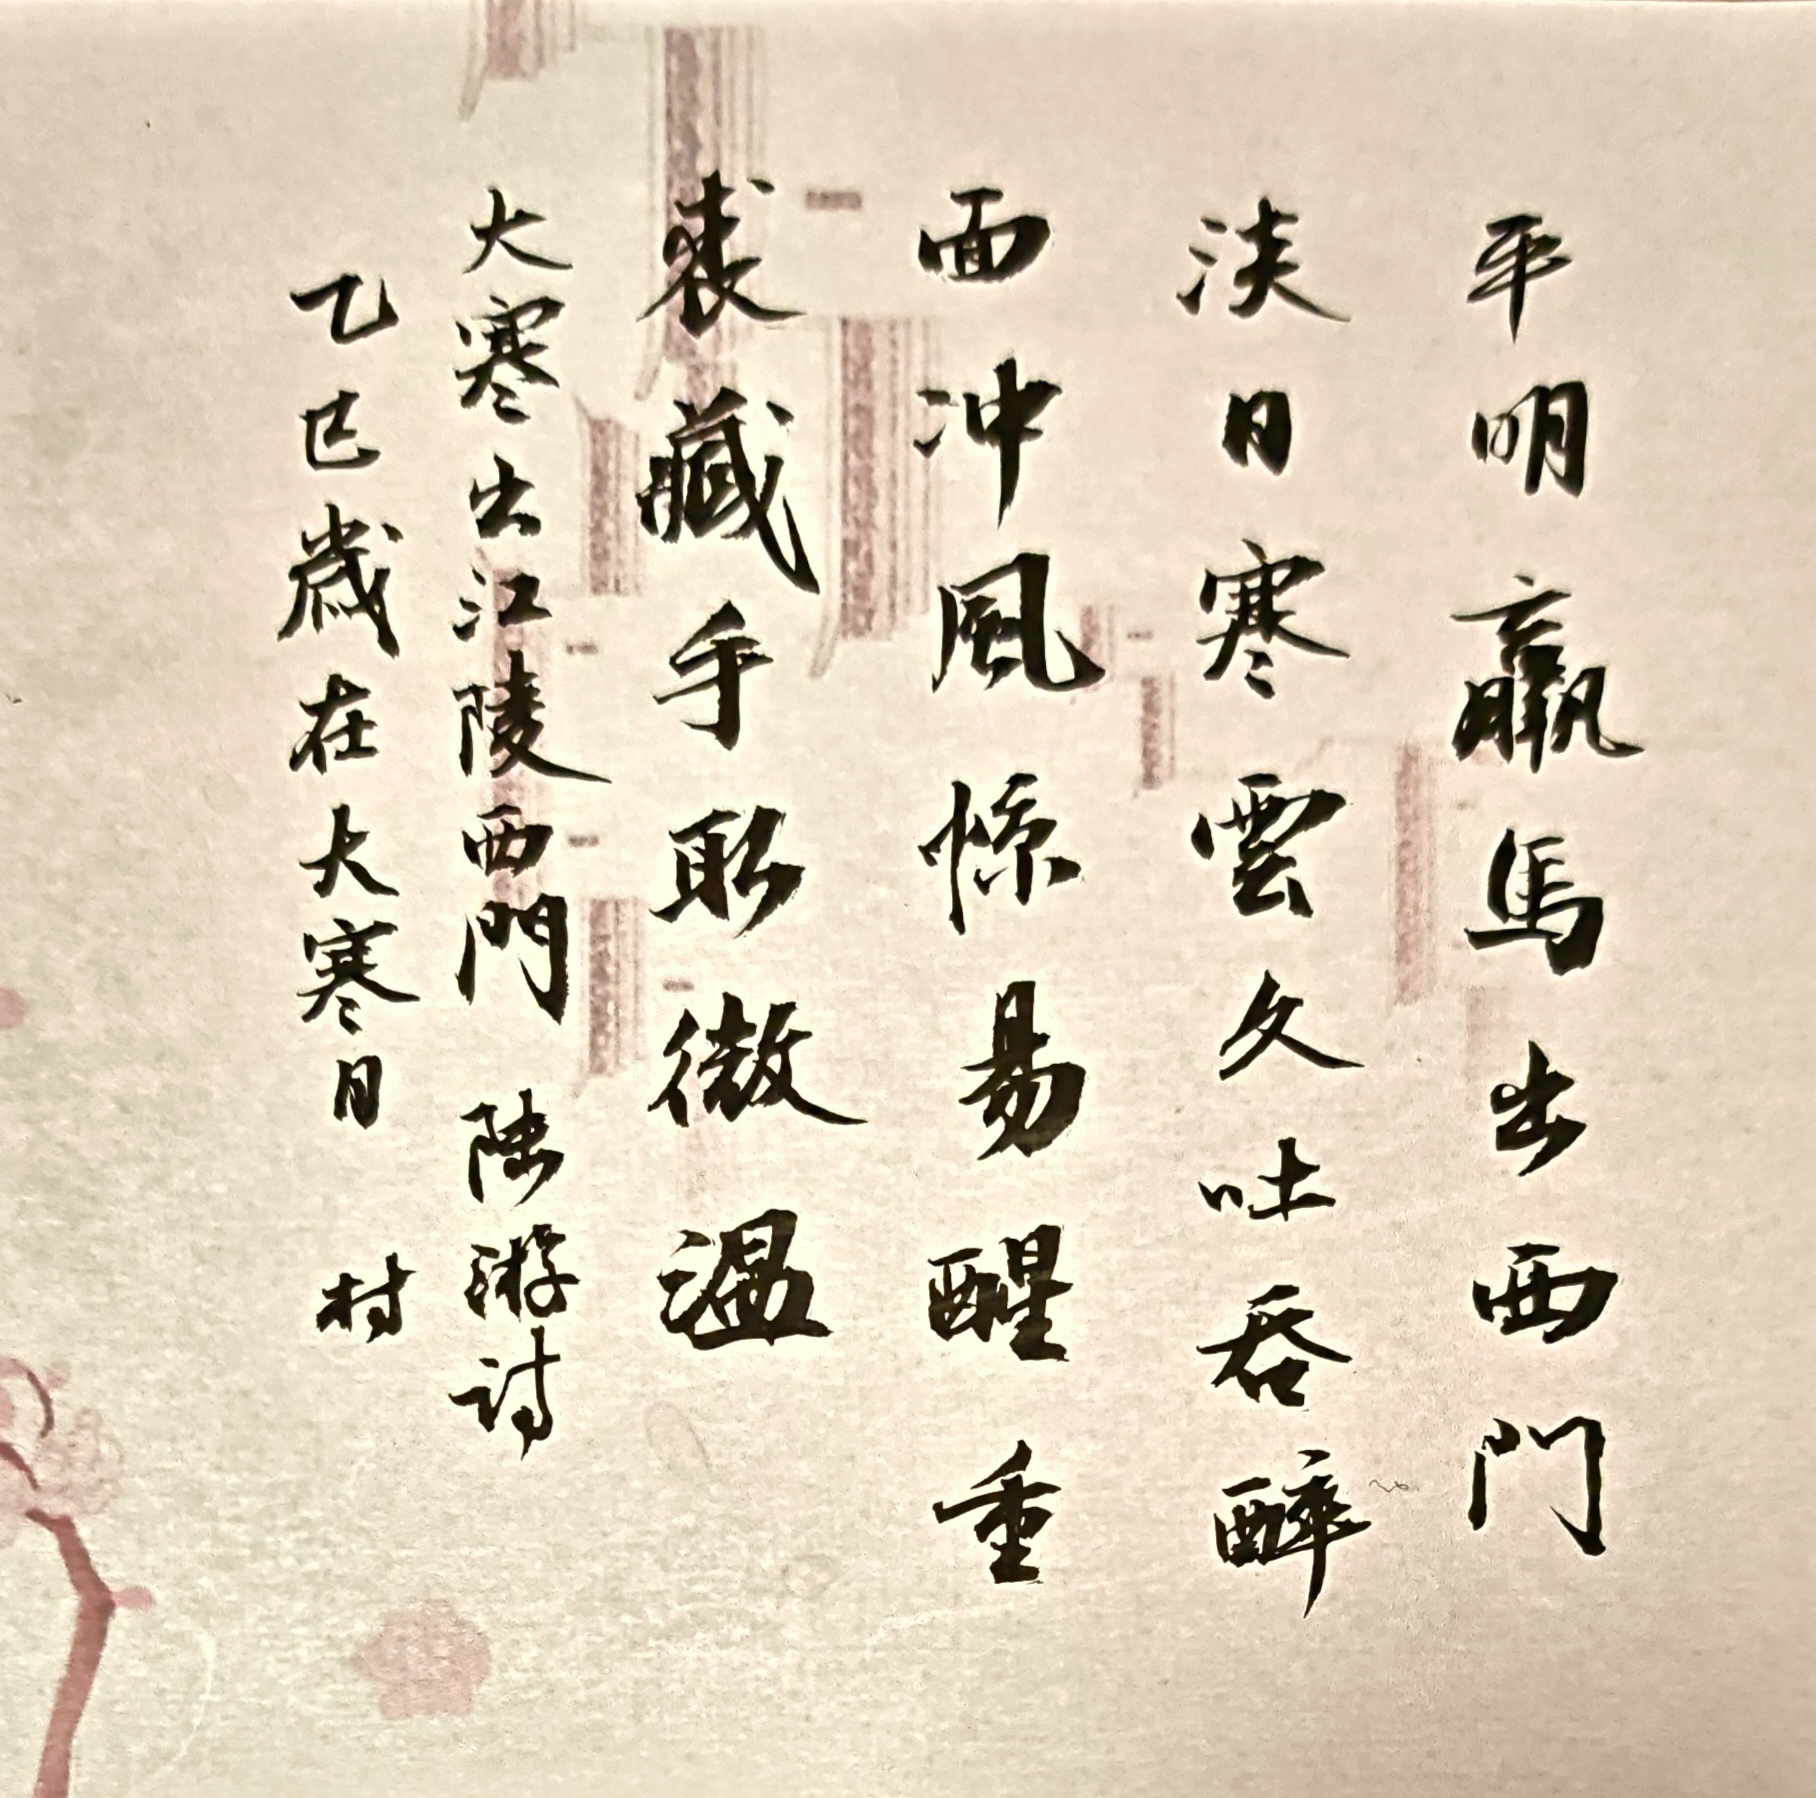 平明羸馬出西门
淡日寒雲久吐吞醉
面冲風惊易醒重
裘藏手取微温
大寒出江陵西門 陸游诗
乙巳歲在大寒日 村